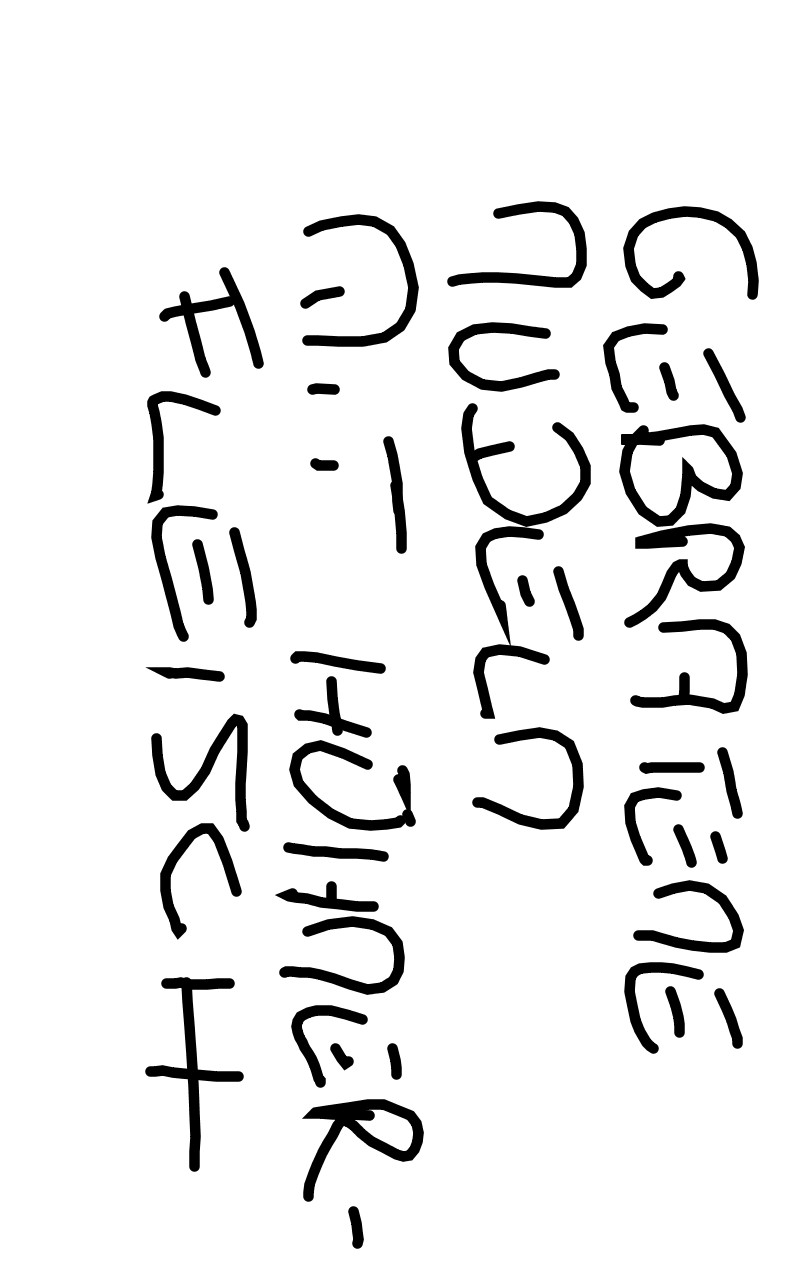 GEBRATENE
NUDELN
MIT HÜHNER-
FLEISCH